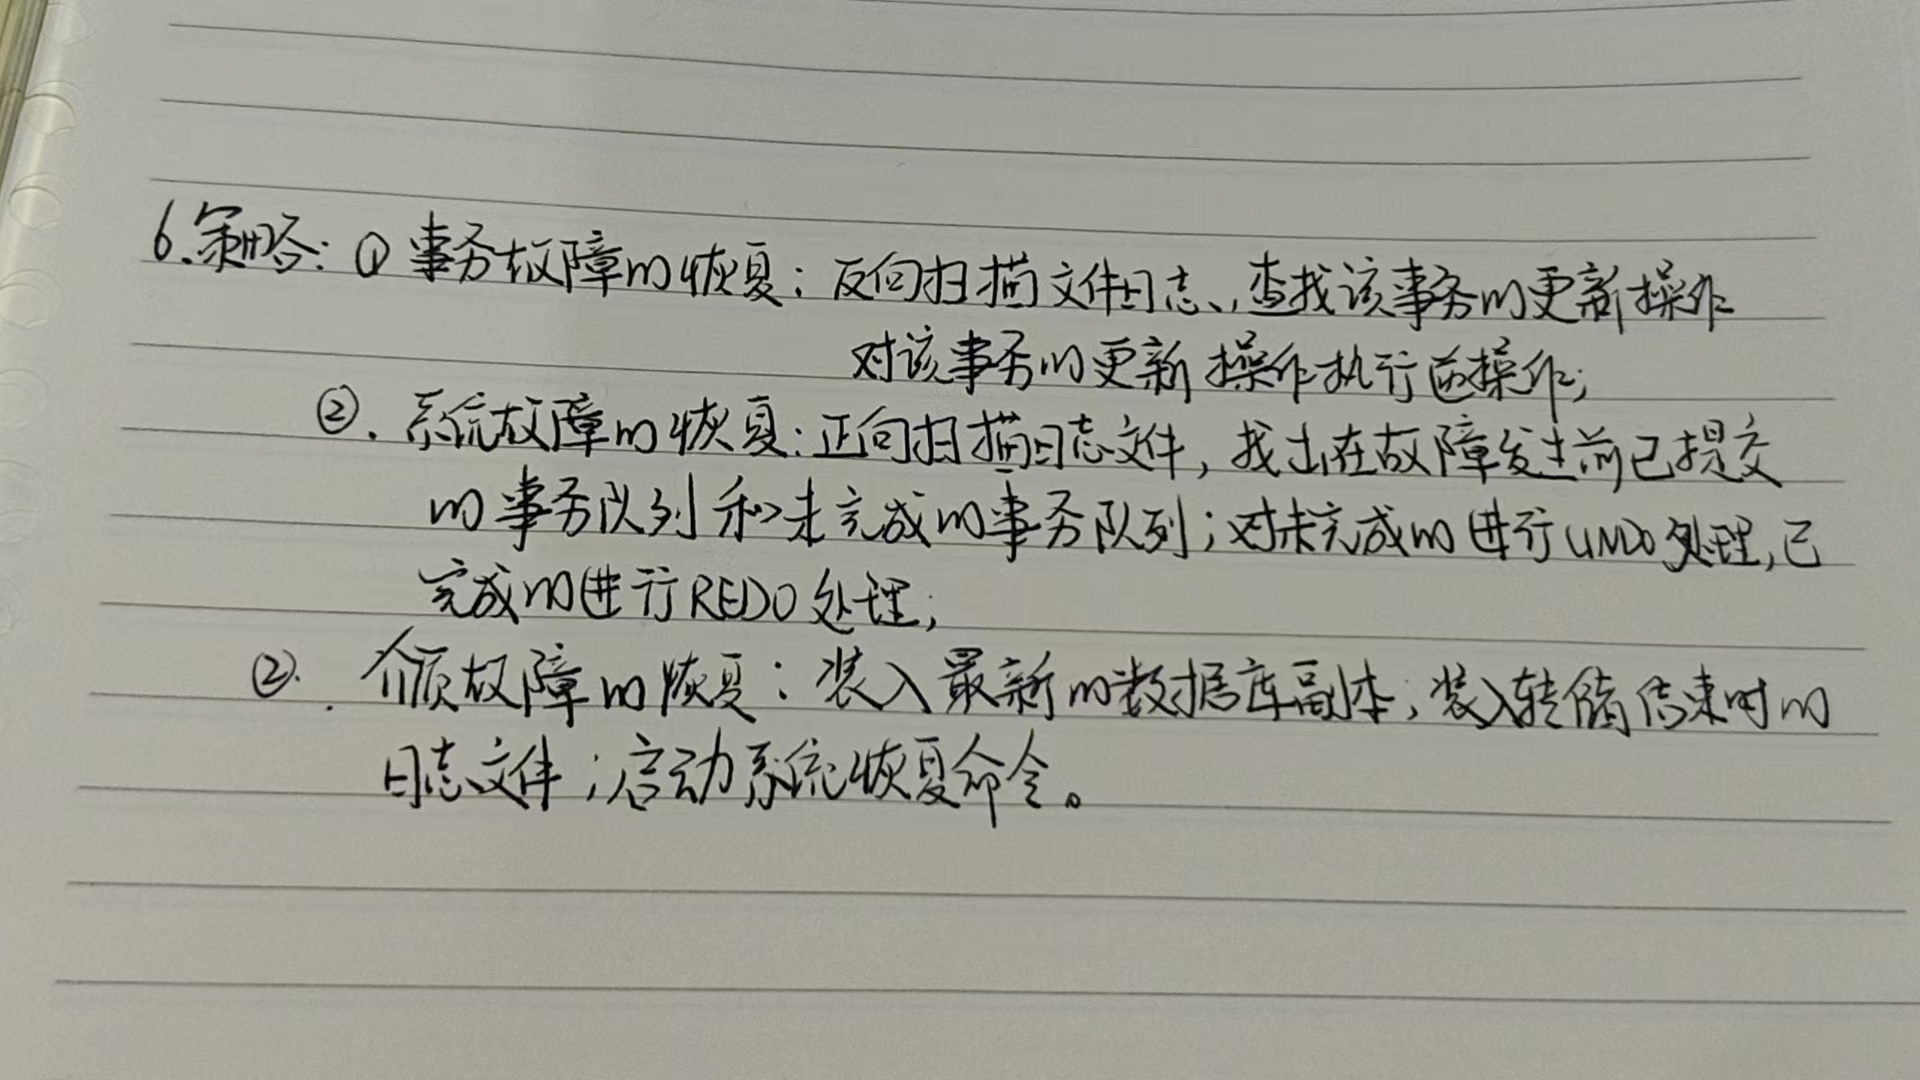 6.策略：① 事务故障的恢复：反向扫描文件日志、,查找该事务的更新操作
对该事务的更新操作执行逆操作；
②. 系统故障的恢复：正向扫描日志文件，找出在故障发生前已提交
的事务队列和未完成的事务队列；对未完成的进行UNDO处理，已
完成的进行REDO处理；
②. 介质故障的恢复：装入最新的数据库副本；装入转储结束时的
日志文件；启动系统恢复命令。